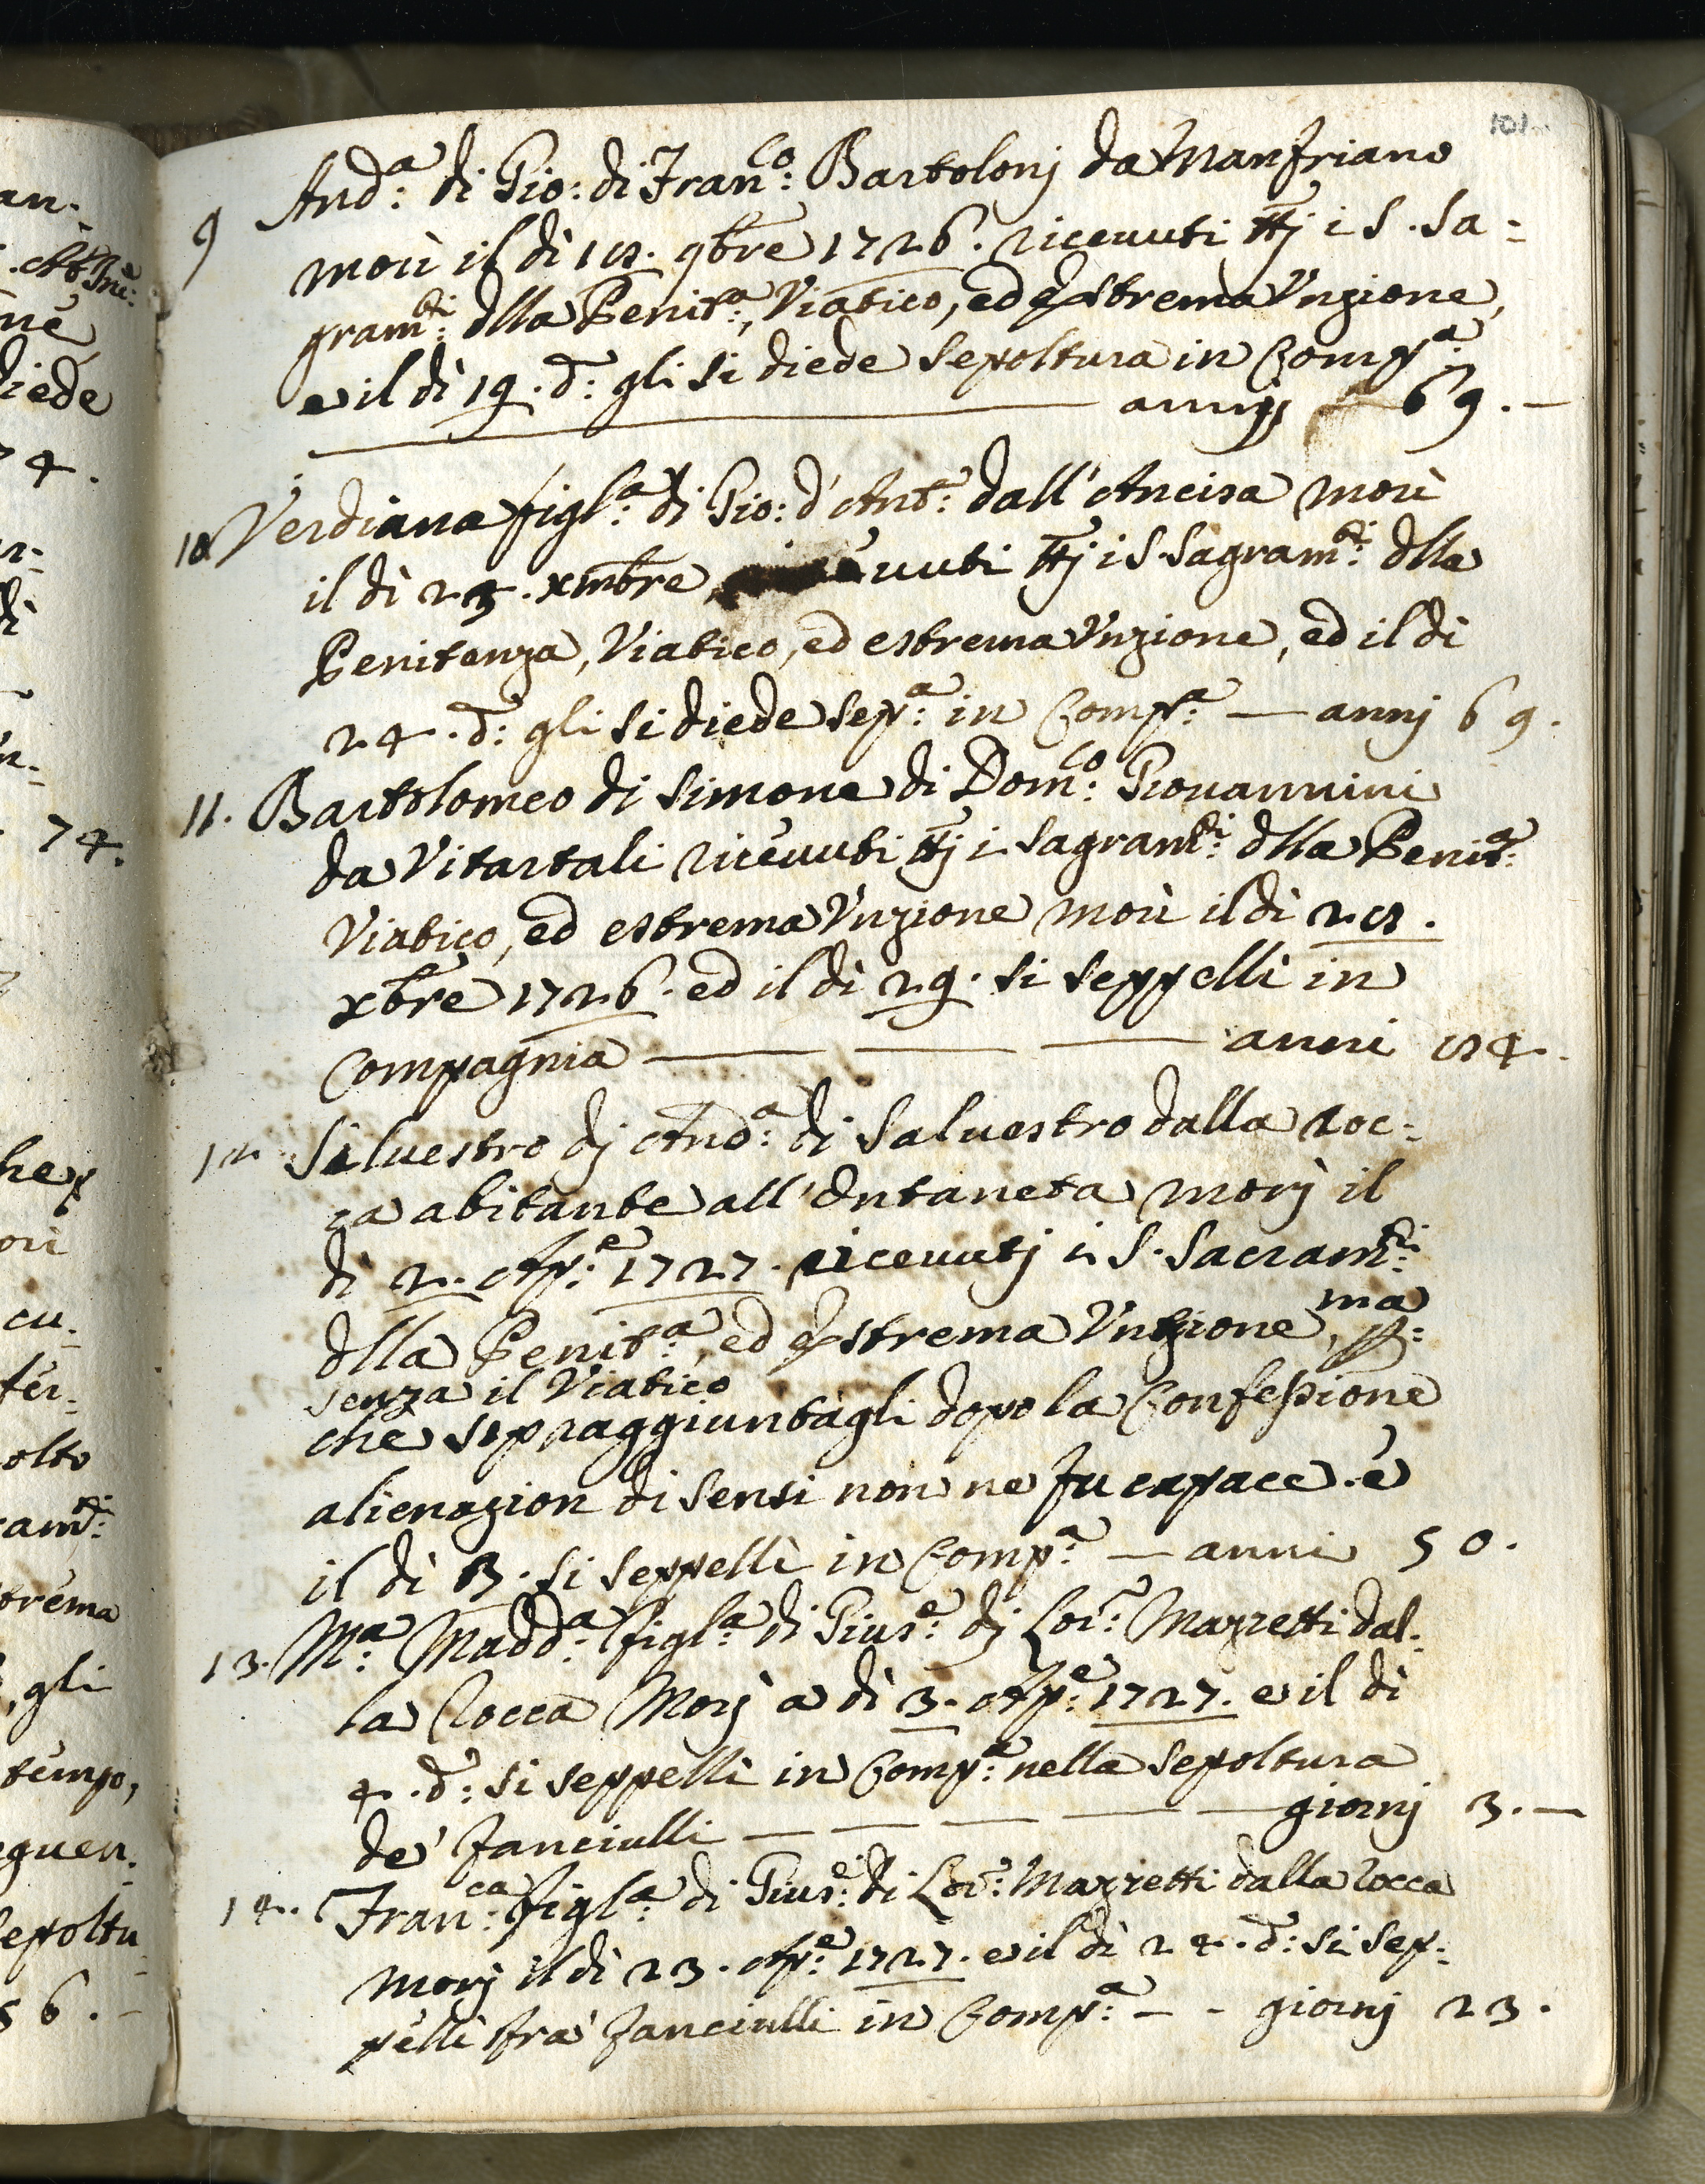 101
9 And:ª di Gio: di Fran:co Bartolonj da Manfriano
morì il dì 18. 9bre 1726. riceuuti ttj i S. Sa=
gram:ti dlla Penit:ª, Viatico, ed Estrema Vnzione,
e il dì 19. d: gli si diede sepoltura in Comp:ª
annj 69. -
10 Verdiana figl:ª di Gio: d'Ant:º dall'Ancisa morì
il dì 23. xmbre, riceuuti ttj i S. Sagram:ti dlla
Penitenza, Viatico, ed estrema Vnzione, ed il dì
24. d: gli si diede sep:ª in Comp:ª — annj 69.
11. Bartolomeo di Simone di Dom:co Giouannini
da Vitartali riceuuti ttj i Sagram:ti dlla Penit:ª
Viatico, ed estrema Vnzione morì il dì 28.
xbre 1726. ed il dì 29. si seppellì in
Compagnia — — — anni 84.
12. Siluestro dj And:ª di Saluestro dalla Roc=
ca abitante all'Ontaneta morj il
dì 2. Ap:e 1727. riceuutj i S. Sacram:ti
dlla Penit:ª, ed Estrema Vnzione, ma
senza il Viatico
che sopraggiuntagli dopo la Confessione
alienazion di sensi non ne fu capace. e
il dì 3. si seppellì in Comp:ª — anni 50.
13. M:ª Madd:ª figl:ª di Gius:e dj Lor:º Mazzetti dal=
la Rocca Morj a dì 3. Ap:e 1727. e il dì
4. d: si seppellì in Comp:ª nella sepoltura
de' Fanciulli — — — — giornj 3. —
14. Fran:ca figl:ª di Gius:e di Lor:º Mazzetti dalla Rocca
morj il dì 23. Ap:e 1727. e il dì 24. d: si sep=
pellì fra' Fanciulli in Comp:ª — - giornj 23.